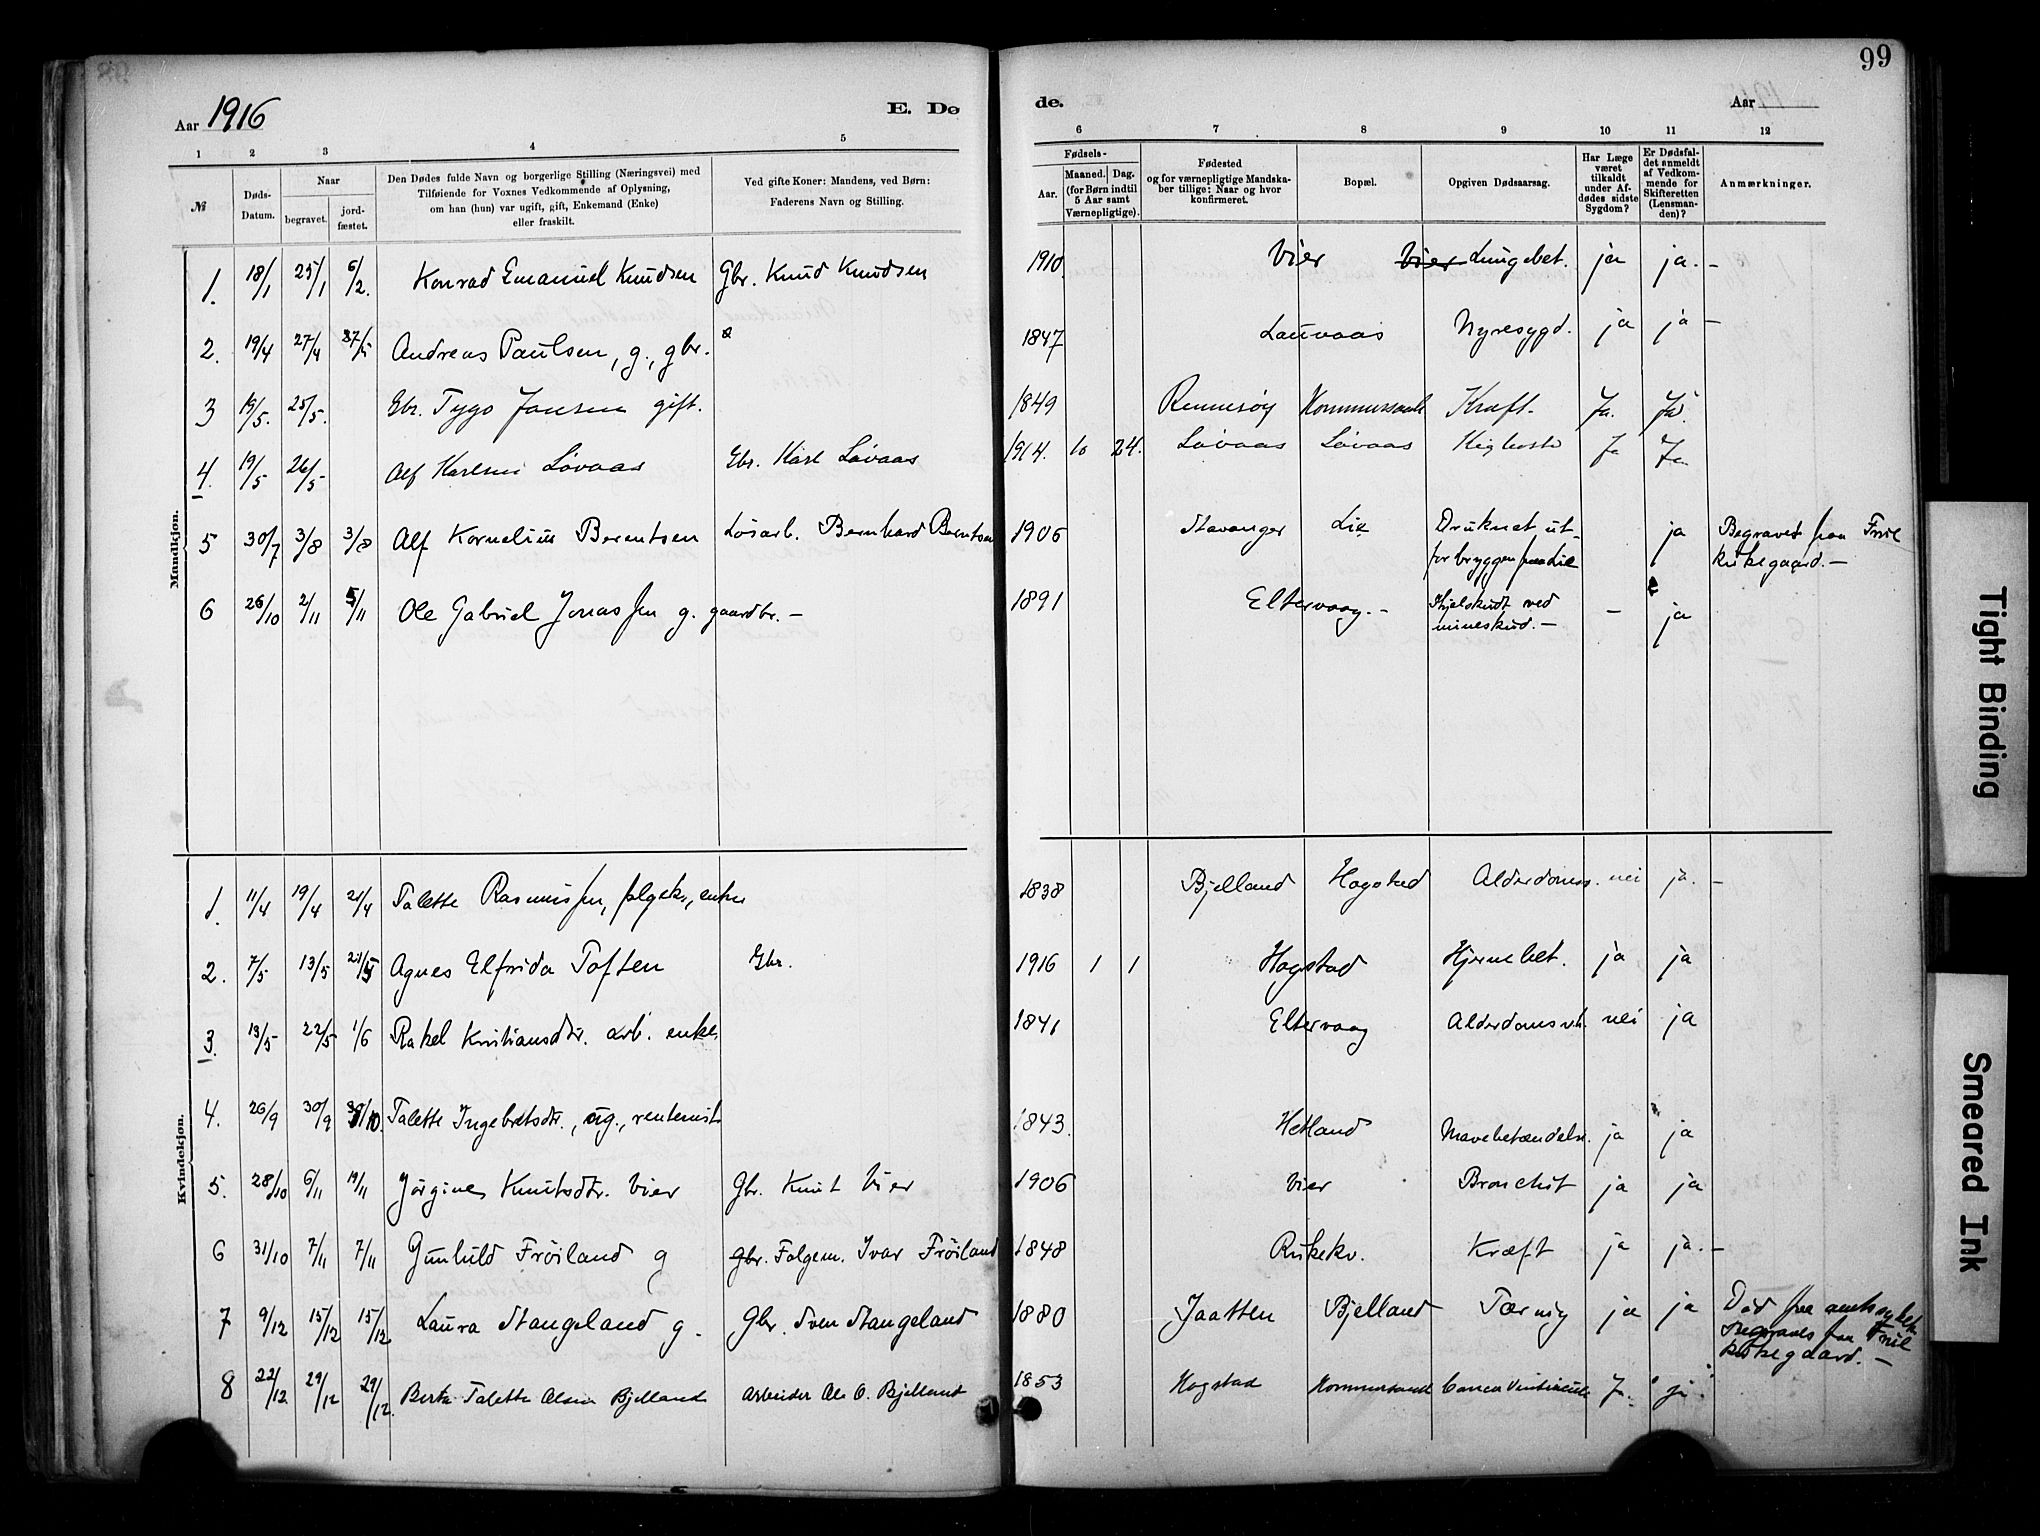 99
Aar 1916 E. Dø
de. Aar
1 2 3 4 5 6 7 8 9 10 11 12
№
Døds-
Datum.
Naar
begravet.
jord-
fæstet.
Den Dødes fulde Navn og borgerlige Stilling (Næringsvei) med
Tilføiende for Voxnes Vedkommende af Oplysning,
om han (hun) var ugift, gift, Enkemand (Enke)
eller fraskilt.
Ved gifte Koner: Mandens, ved Børn:
Faderens Navn og Stilling.
Fødsels-
Aar.
Maaned. Dag.
(for Børn indtil
5 Aar samt
Værnepligtige).
Fødested
og for værnepligtige Mandska-
ber tillige: Naar og hvor
konfirmeret.
Bopæl.
Opgiven Dødsaarsag.
Har Læge
været
tilkaldt
under Af-
dødes sidste
Sygdom?
Er Dødsfal-
det anmeldt
af Vedkom-
mende for
Skifteretten
(Lensman-
den)?
Anmærkninger.
Mandkjøn.
1. 18/1 25/1 6/2. Konrad Emanuel Knudsen Gbr. Knud Knudsen 1910. Vier Vier Lungebet. ja ja. —
2. 19/4 27/4 Andreas Paulsen, g., gbr. 1847 Lauvaas Nyresygd. ja ja —
3 19/5. 25/5. Gbr. Tygo Jansen gift. 1849 Rennesøy Kræft. Ja. Ja.
4. 19/5 26/5 Alf Løvaas Gbr. Karl Løvaas 1914. 10 24. Løvaas Løvaas Kighoste Ja Ja
5 30/7 3/8 3/8 Alf Kornelius Berentsen Løsarb. Bernhard Berntsen 1906 Stavanger Lie Druknet ut- ja Begravet paa Frue
for bryggen paa Lie kirkegaard. —
6 26/10 2/11 5/11 Ole Gabriel Jonassen g. gaardbr. — 1891 Eltervaag. — Ihjelskudt ved — ja
mineskud. —
Kvindekjøn.
1. 11/4 19/4 21/4 Talette Rasmussen, enke 1838 Bjelland Hogstad Alderdomss. nei ja. —
2. 7/5 13/5 21/5 Agnes Elfrida Toften Gbr. 1916 1 1 Hogstad Hjernebet. ja ja
3. 13/5 22/5 1/6 Rakel Kristiansdtr. arb. enke. 1841 Eltervaag nei ja
4. 26/9 30/9 Talette Ingebretsdtr., ug., rentenist 1843. Hetland Mavebetændelse. ja ja
5. 28/10 6/11 19/11 Jørgine Knutsdtr. Vier Gbr. Knut Vier 1906 Vier Bronchit ja ja
6 31/10 7/11 7/11 Gunhild Frøiland g Gbr. Folgem. Ivar Frøiland 1848 Kræft ja ja. —
7 9/12 15/12 15/12 Laura Stangeland g. Gbr. Sven Stangeland 1880 Jaatten Bjelland Tæring ja ja Død paa amtssykeh.
Begraves paa Frue
kirkegaard. —
8 22/12 29/12 29/12 Berta Talette Olsen Bjelland Arbeider Ole O. Bjelland 1853 Hogstad Cancer Ventriculi Ja. ja.
Tight Binding
Smeared Ink